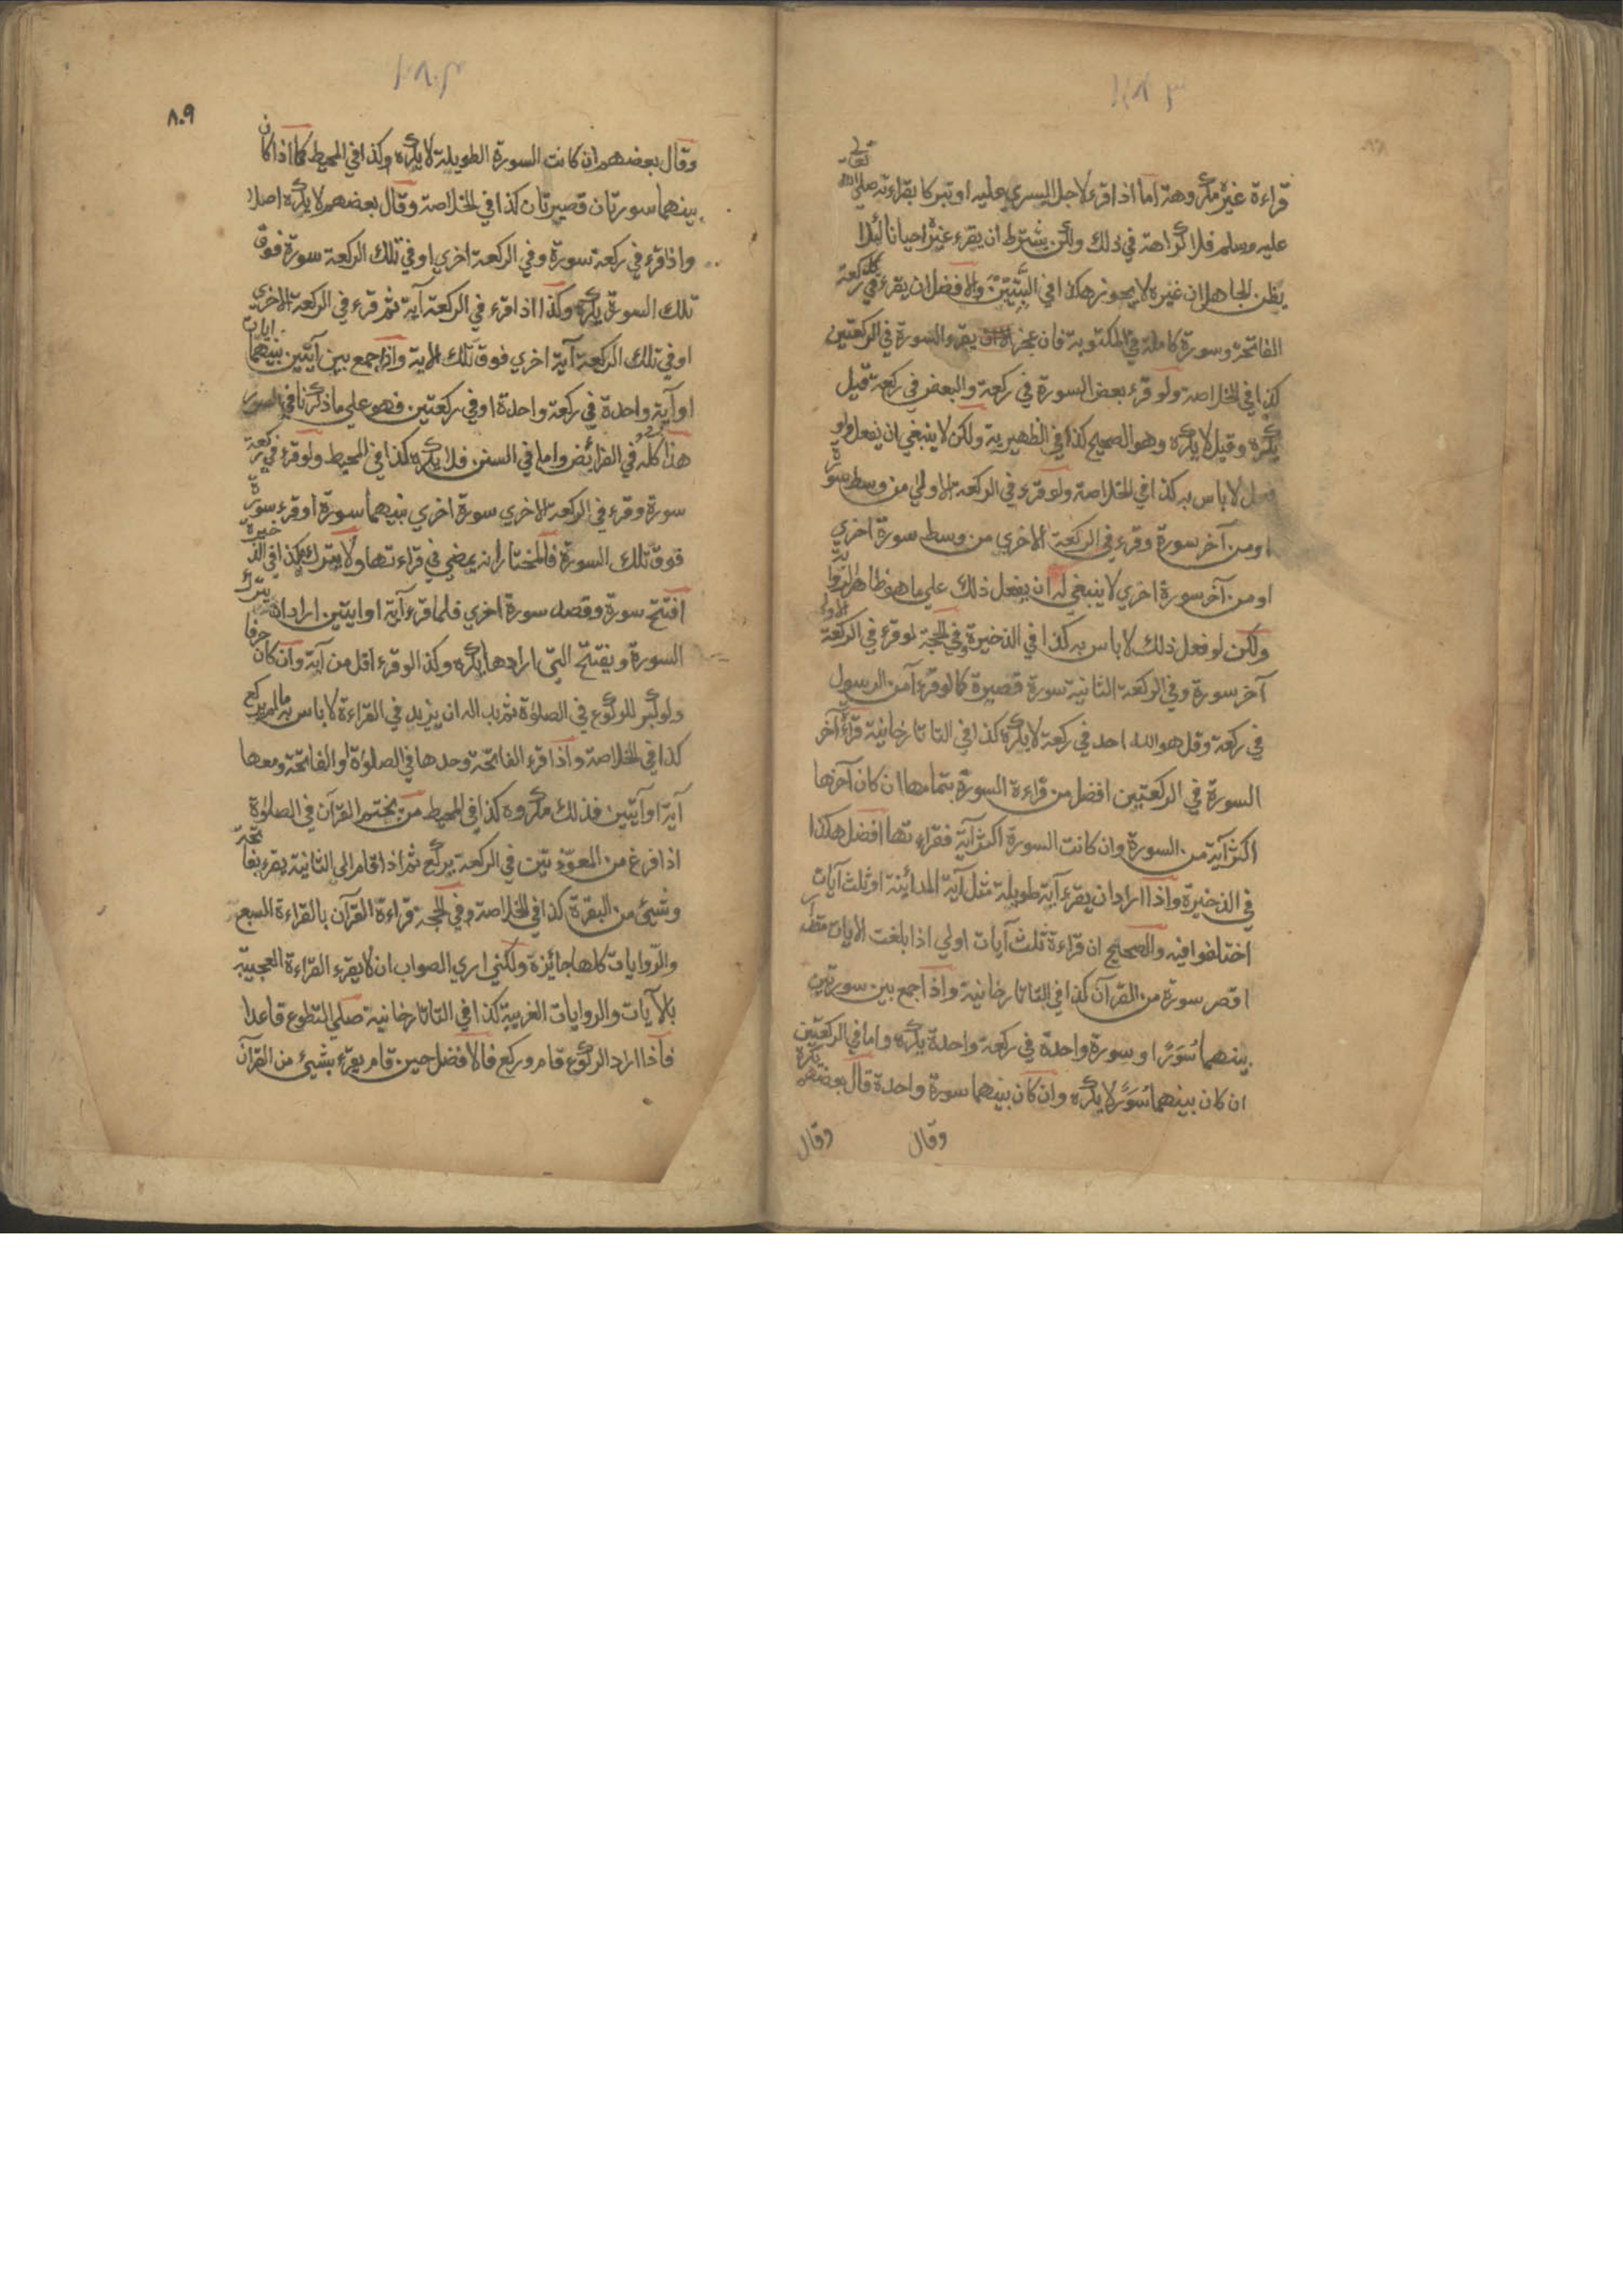 قراءة غير مكروهة اما اذا قرء لاجل اليسري عليه او تبركا بقراءته صلي الله تعالي
عليه وسلم فلا كراهة في ذلك ولكن بشرط ان يقرء غيره احيانا لئلا
يظن الجاهل ان غيره لا يجوز هكذا في التبيين والافضل ان يقرء في كل ركعة
الفاتحة وسورة كاملة في المكتوبة فان عجز يقرء السورة في الركعتين
كذا في الخلاصة ولو قرء بعض السورة في ركعة والبعض في ركعة قيل
يكره وقيل لا يكره وهو الصحيح كذا في الظهيرية ولكن لا ينبغي ان يفعل ولو
فعل لا باس به كذا في الخلاصة ولو قرء في الركعة الاولي من وسط سورة
او من آخر سورة وقرء في الركعة الاخري من وسط سورة اخري
او من آخر سورة اخري لا ينبغي له ان يفعل ذلك علي ما هو ظاهر الرواية
ولكن لو فعل ذلك لا باس به كذا في الذخيرة وفي الحجة لو قرء في الركعة الاولي
آخر سورة وفي الركعة الثانية سورة قصيرة كما لو قرء آمن الرسول
في ركعة وقل هو الله احد في ركعة لا يكره كذا في التاتارخانية قرأ آخر
السورة في الركعتين افضل من قراءة السورة بتمامها ان كان آخرها
اكثر آية من السورة وان كانت السورة اكثر آية فقراءتها افضل هكذا
في الذخيرة واذا اراد ان يقرء آية طويلة مثل آية المداينة او ثلث آيات
اختلفوا فيه والصحيح ان قراءة ثلث آيات اولي اذا بلغت الايات مقدار
اقصر سورة من القرآن كذا في التاتارخانية واذا جمع بين سورتين
بينهما سُوَرًا و سورة واحدة في ركعة واحدة يكره واما في الركعتين
ان كان بينهما سُوَرًا لا يكره وان كان بينهما سورة واحدة قال بعضهم يكره
وقال وقال
٨٠٩
وقال بعضهم ان كانت السورة الطويلة لا يكره وكذا في المحيط كما اذا كان
بينهما سورتان قصيرتان كذا في الخلاصة وقال بعضهم لا يكره اصلا
واذا قرء في ركعة سورة وفي الركعة اخري او في تلك الركعة سورة فوق
تلك السورة يكره وكذا اذا قرء في الركعة آية ثم قرء في الركعة الاخري
او في تلك الركعة آية اخري فوق تلك الاية واذا جمع بين آيتين بينهما ايات
او آية واحدة في ركعة واحدة او في ركعتين فهو علي ما ذكرنا في السور
هذا كله في الفرائض واما في السنن فلا يكره كذا في المحيط ولو قرء في ركعة
سورة وقرء في الركعة الاخري سورة اخري بينهما سورة او قرء سورة
فوق تلك السورة فالمختار انه يمضي في قراءتها ولا يترك هكذا في الذخيرة
افتتح سورة وقصد سورة اخري فلما قرء آية او ايتين اراد ان يترك
السورة ويفتتح التي ارادها يكره وكذا لو قرء اقل من آية وان كان حرفا
ولو كبر للركوع في الصلوٰة ثم بدا له ان يزيد في القراءة لا باس به ما لم يركع
كذا في الخلاصة واذا قرء الفاتحة وحدها في الصلوٰة او الفاتحة ومعها
آية او آيتين فذلك مكروه كذا في المحيط من يختم القرآن في الصلوٰة
اذا فرغ من المعوّذتين في الركعة يركع ثم اذا قام الي الثانية يقرء بفاتحة
وشيئ من البقرة كذا في الخلاصة وفي الحجة قراءة القرآن بالقراءة السبع
والروايات كلها جائزة ولكني اري الصواب ان لا يقرء القراءة العجيبة
بالآيات والروايات الغريبة كذا في التاتارخانية صلي التطوع قاعدا
فاذا اراد الركوع قام وركع فالافضل حين قام يقرء بشيئ من القرآن